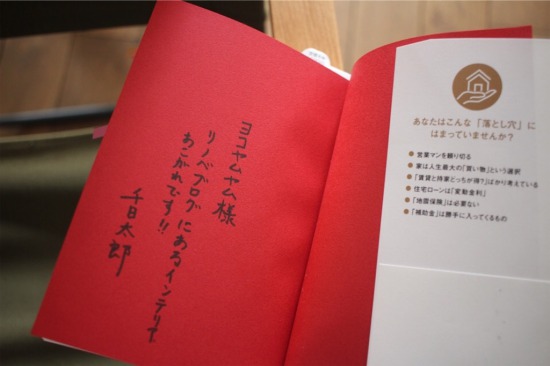 ヨコヤムヤム様
リノベブログにあるインテリア、
あこがれです!!
千日太郎
あなたはこんな「落とし穴」に
はまっていませんか?
● 営業マンを頼り切る
● 家は人生最大の「買い物」という選択
● 「賃貸と持家どっちが得?」ばかり考えている
● 住宅ローンは「変動金利」
● 「地震保険」は必要ない
● 「補助金」は勝手に入ってくるもの